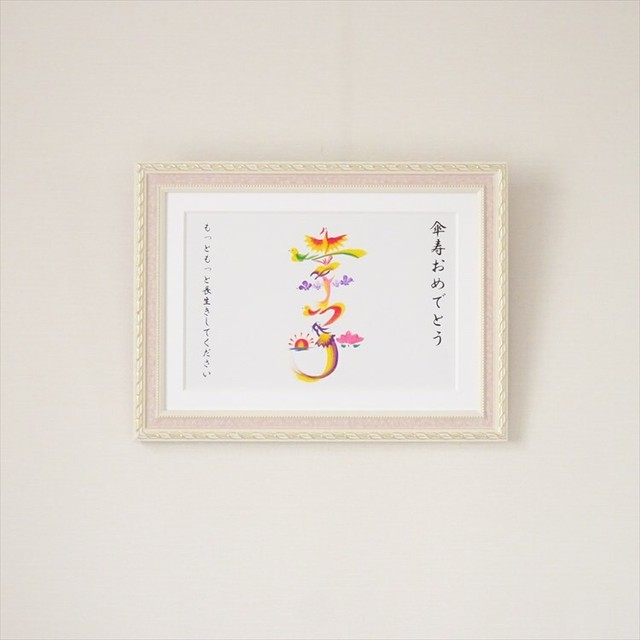 傘寿おめでとう
もっともっと長生きしてください